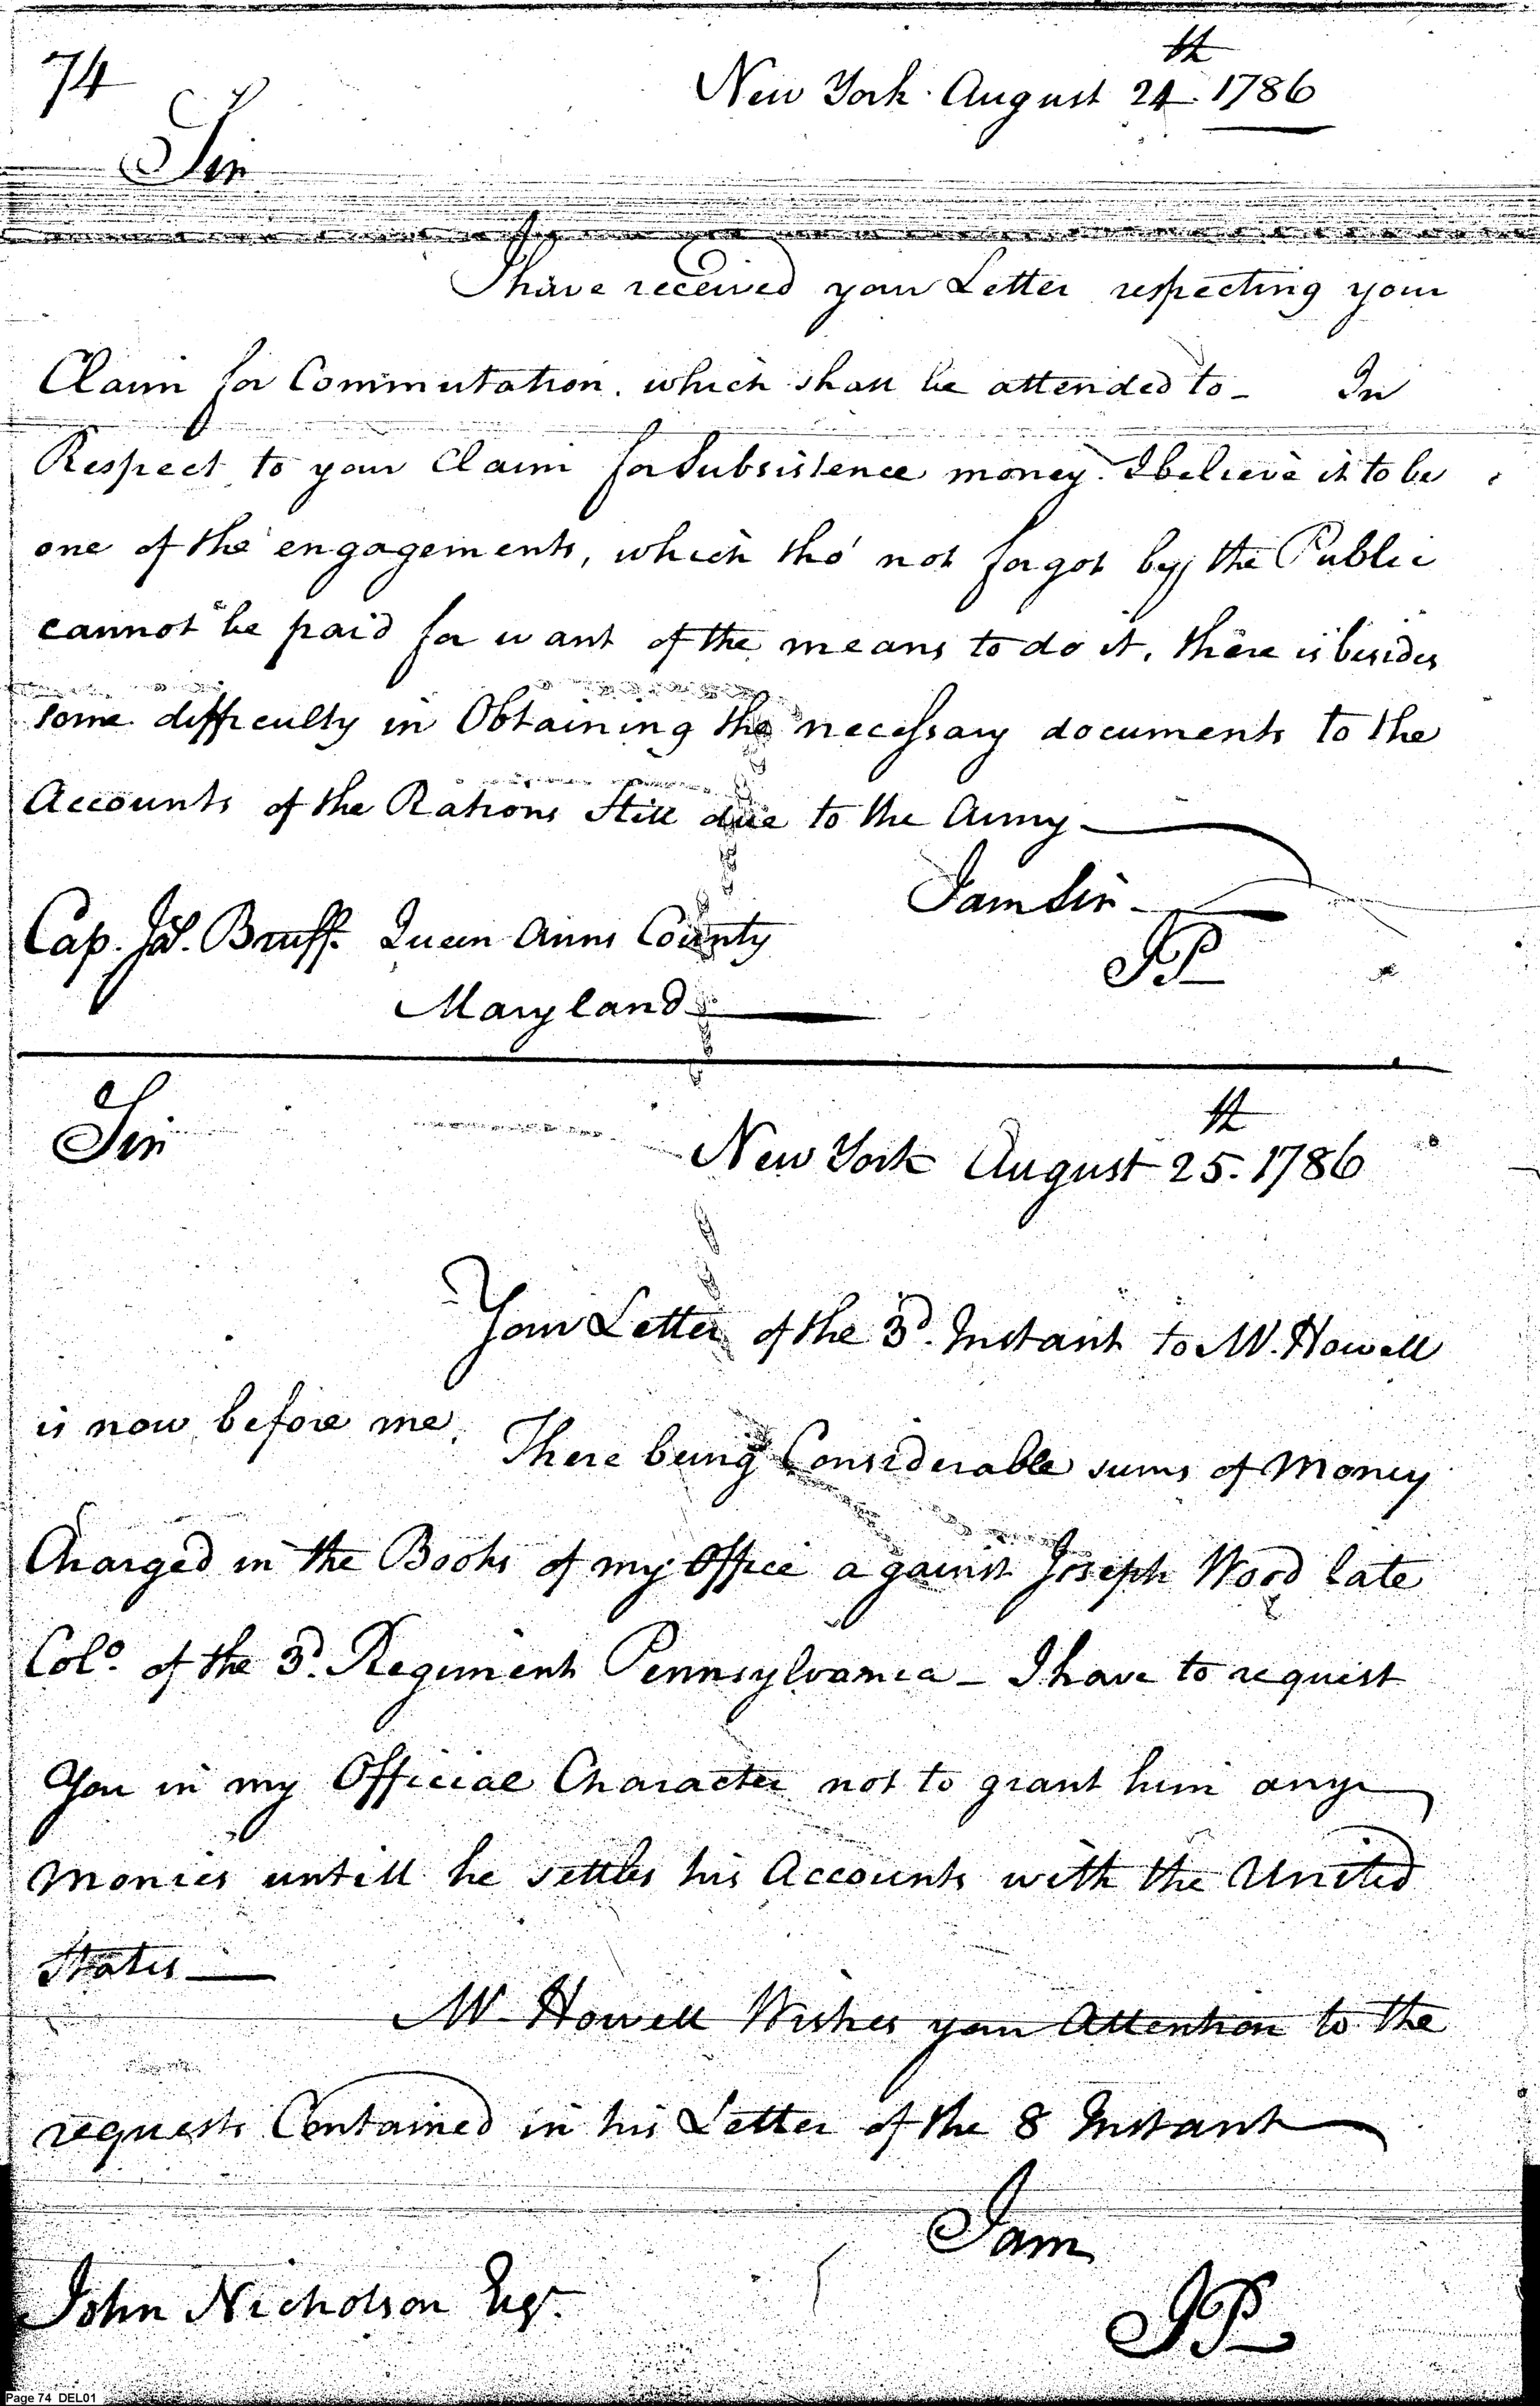 74
New York. August 24th. 1786
Sir
I have received your Letter respecting your
Claim for Commutation. which shall be attended to_ In
Respect to your Claim for Subsistence money. I believe it to be
one of the engagements, which tho' not forgot by the Public
cannot be paid for want of the means to do it, there is besides
some difficulty in Obtaining the necessary documents to the
Accounts of the Rations Still due to the Army
I am Sir
Cap. Jas. Bruff. Queen Anns County
JP
Maryland
Sir
New York August 25th. 1786
Your Letter of the 3d. Instant to Mr. Howell
is now before me.
There being Considerable sums of Money
Charged in the Books of my Office against Joseph Wood late
Colo. of the 3d. Regiment Pennsylvania_ I have to request
You in my Official Character not to grant him any
Monies untill he settles his Accounts with the United
States
Mr. Howell Wishes your Attention to the
requests Contained in his Letter of the 8 Instant
I am
John Nicholson Esqr.
JP
Page 74 DEL01